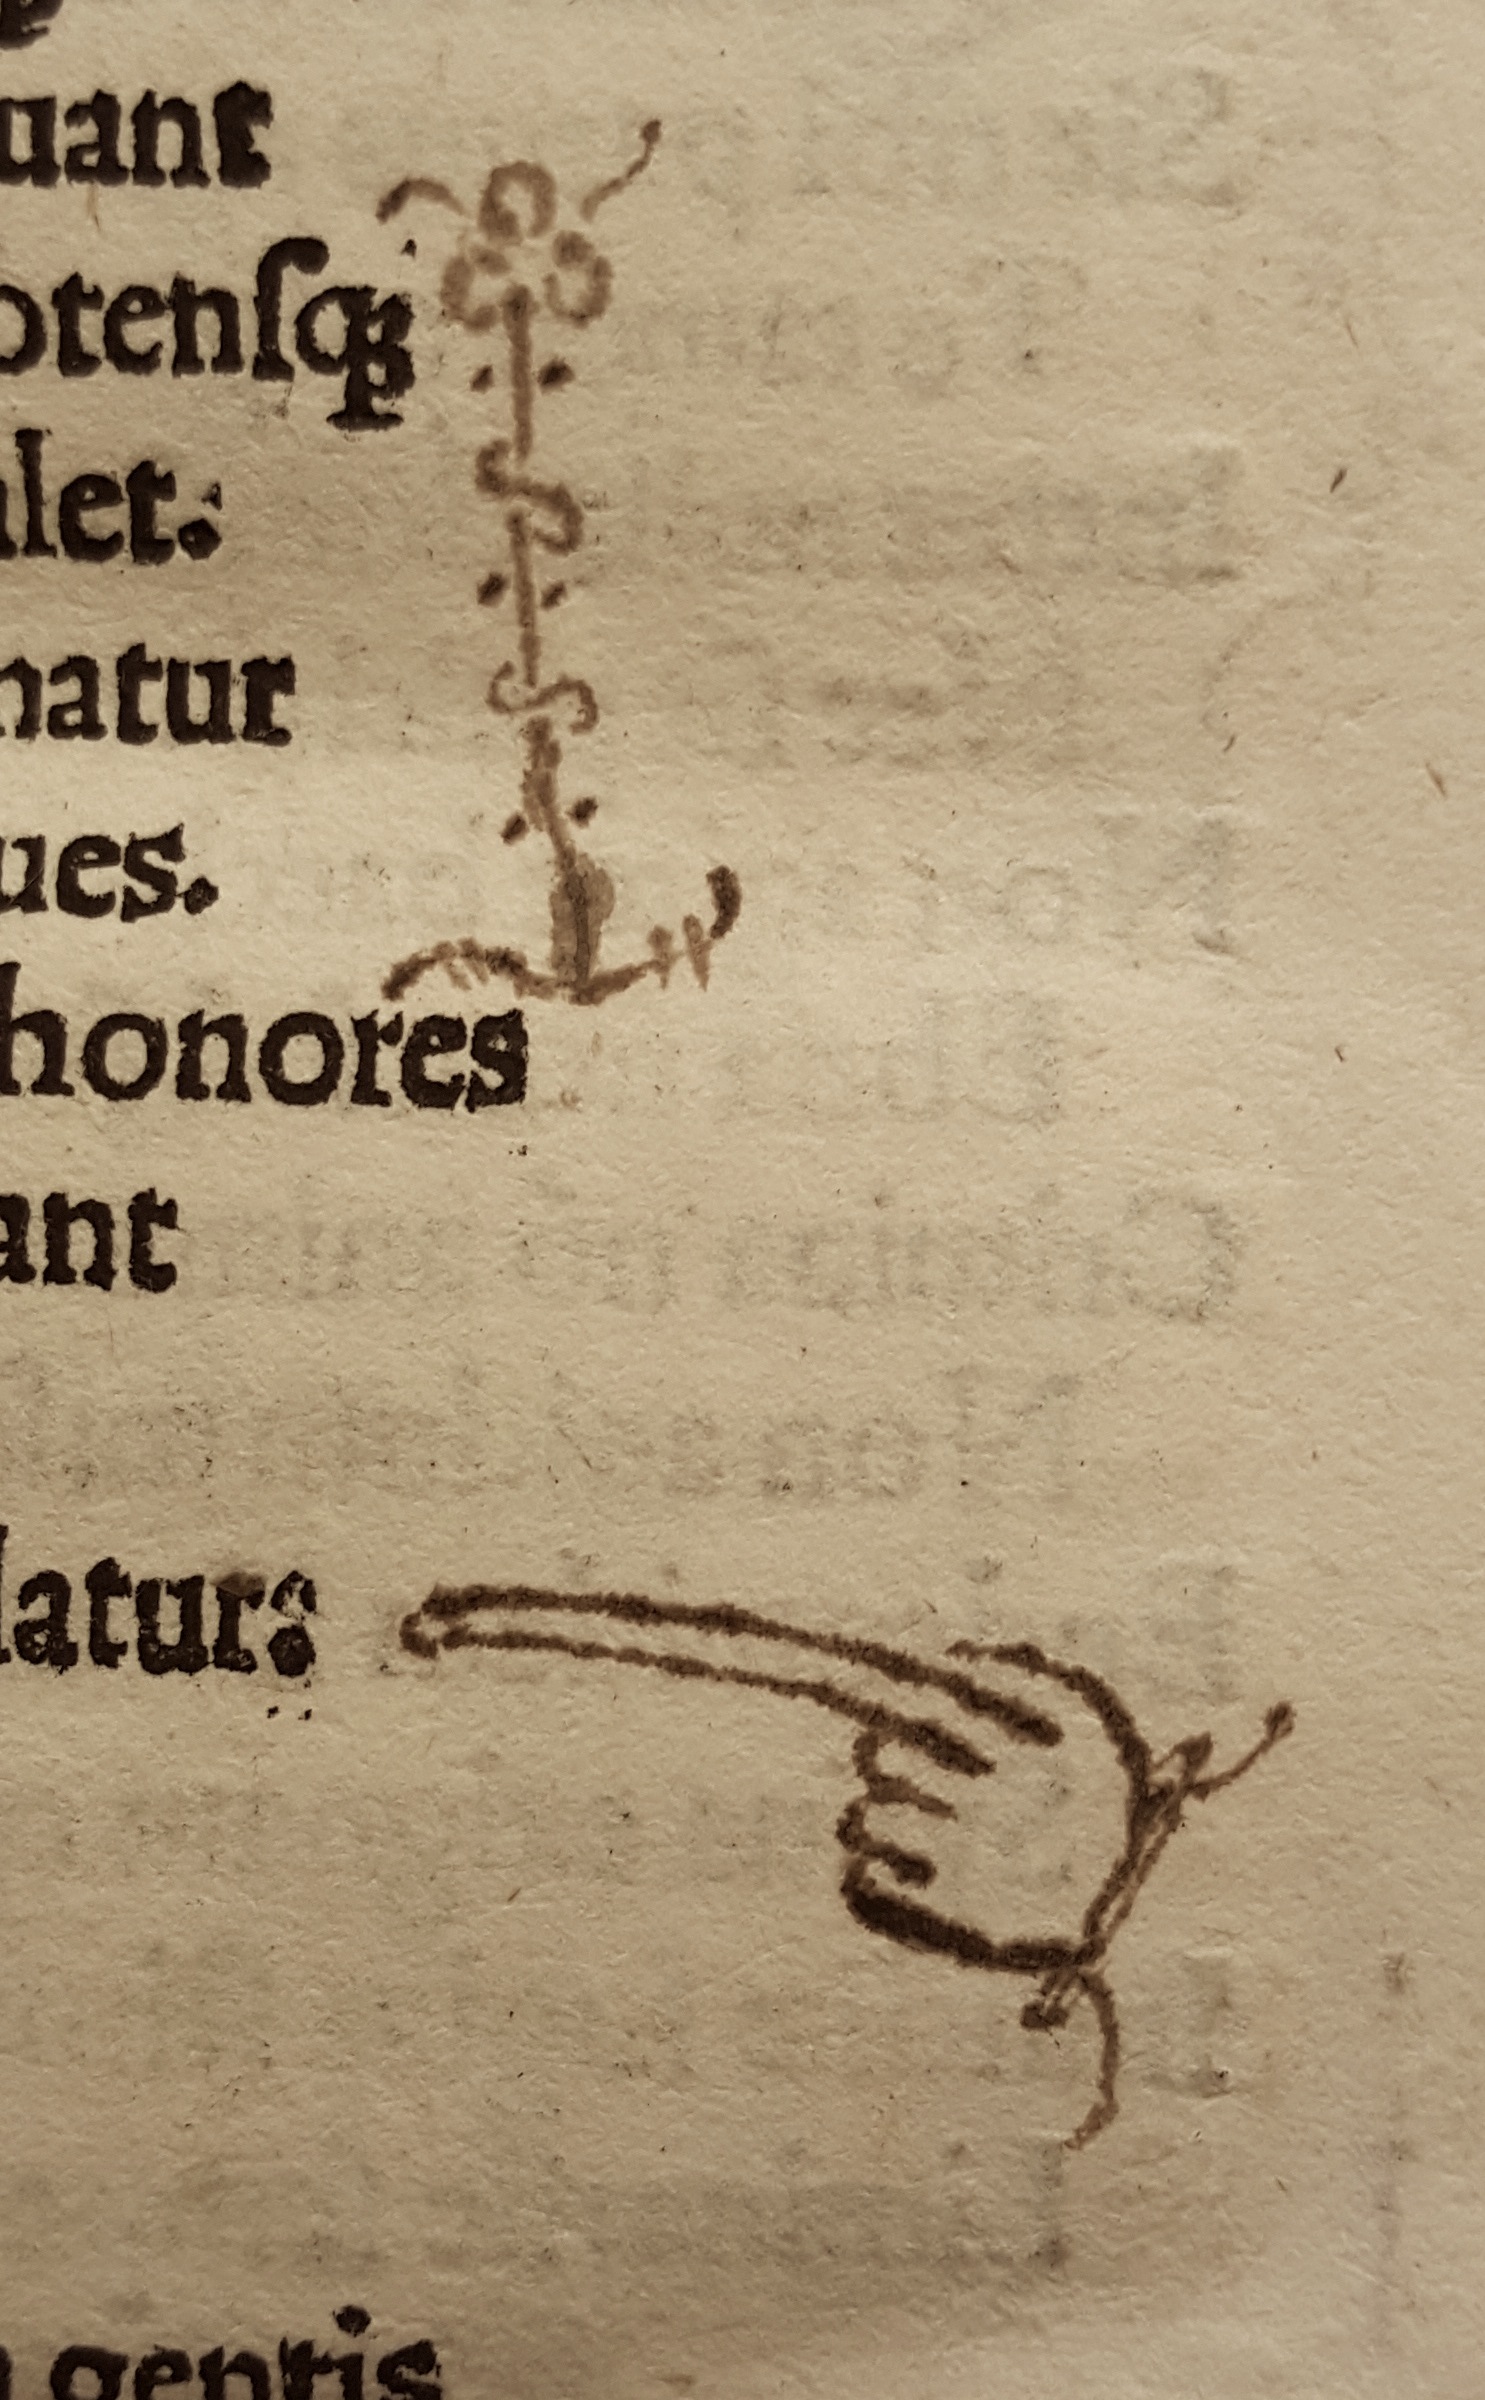 uant
otenſqꝫ
let:
natur
ues.
honores
ant
latur:
gentis